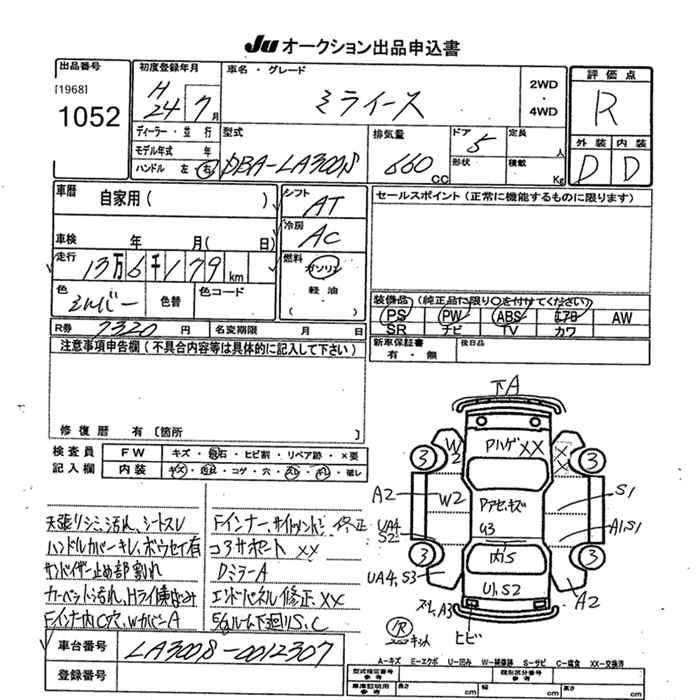 JU オークション出品申込書
出品番号
[1968]
1052
初度登録年月
H 24 7 月
車名・グレード
ミライース
2WD
・
4WD
評価点
R
外装 内装
D D
ディーラー・並行
モデル年式 年
ハンドル 左 右
型式
DBA-LA300S
排気量
660 CC
ドア
5
形状
定員
人
積載
Kg
車歴
自家用( )
車検 年 月( 日)
走行
13万6千179 km
色
シルバー
色替
色コード
R券 7320 円
名変期限 月 日
シフト
AT
冷房
AC
燃料
ガソリン
軽油
( )
セールスポイント(正常に機能するものに限ります)
装備品 (純正品に限り○を付けてください)
PS PW ABS エアB AW
SR ナビ TV カワ
新車保証書
有・無
後日品
注意事項申告欄(不具合内容等は具体的に記入して下さい)
修復歴 有〔箇所 〕
検査員
記入欄
FW キズ・飛石・ヒビ割・リペア跡・×要
内装 キズ・汚れ・コゲ・穴・スレ・キレ・破レ
天張リシミ、汚れ、シートスレ
ハンドルカバーキレ、ボウセイ有
サンバイザー止め部割れ
カーペット汚れ、Hライト
Fインナー穴、WカバーA
Fインナー、サイドメンバー 修正
コアサポート XX
DミラーA
エンドパネル修正、XX
ルーム下廻りS、C
下A
W2
Pハゲ XX
XX
3 3
A2
W2
Pアセ・キズ
U3
S1
UA4
S2
A1,S1
内S
3 3
UA4,S3
U1,S2
A2
スレ,A3
ヒビ
R
キット
車台番号
LA300S-0012307
登録番号
A-キズ E-エクボ U-凹み W-補修跡 S-サビ C-腐食 XX-交換済
型式指定番号
類別区分番号
車庫証明用
参考
長さ cm
幅 cm
高さ cm